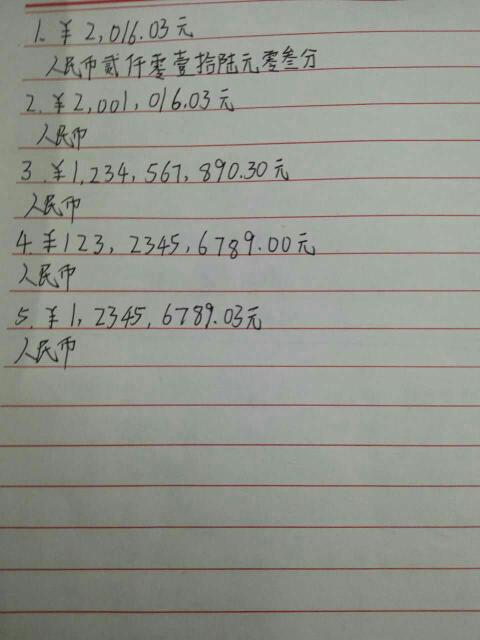 1. ¥ 2,016.03元
人民币贰仟零壹拾陆元零叁分
2. ¥2,001,016.03元
人民币
3. ¥1,234,567,890.30元
人民币
4. ¥123,2345,6789.00元
人民币
5. ¥1,2345,6789.03元
人民币